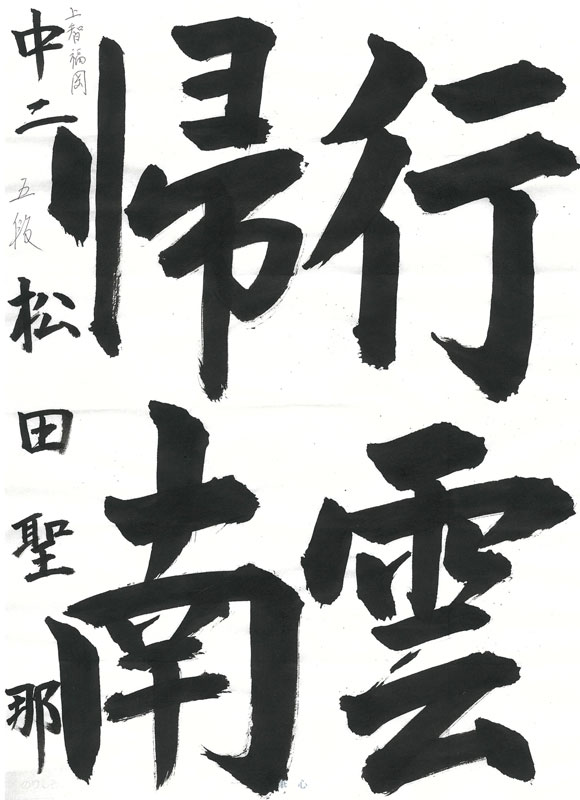 行雲
帰南
上智福岡
中二 五段 松田聖那
心